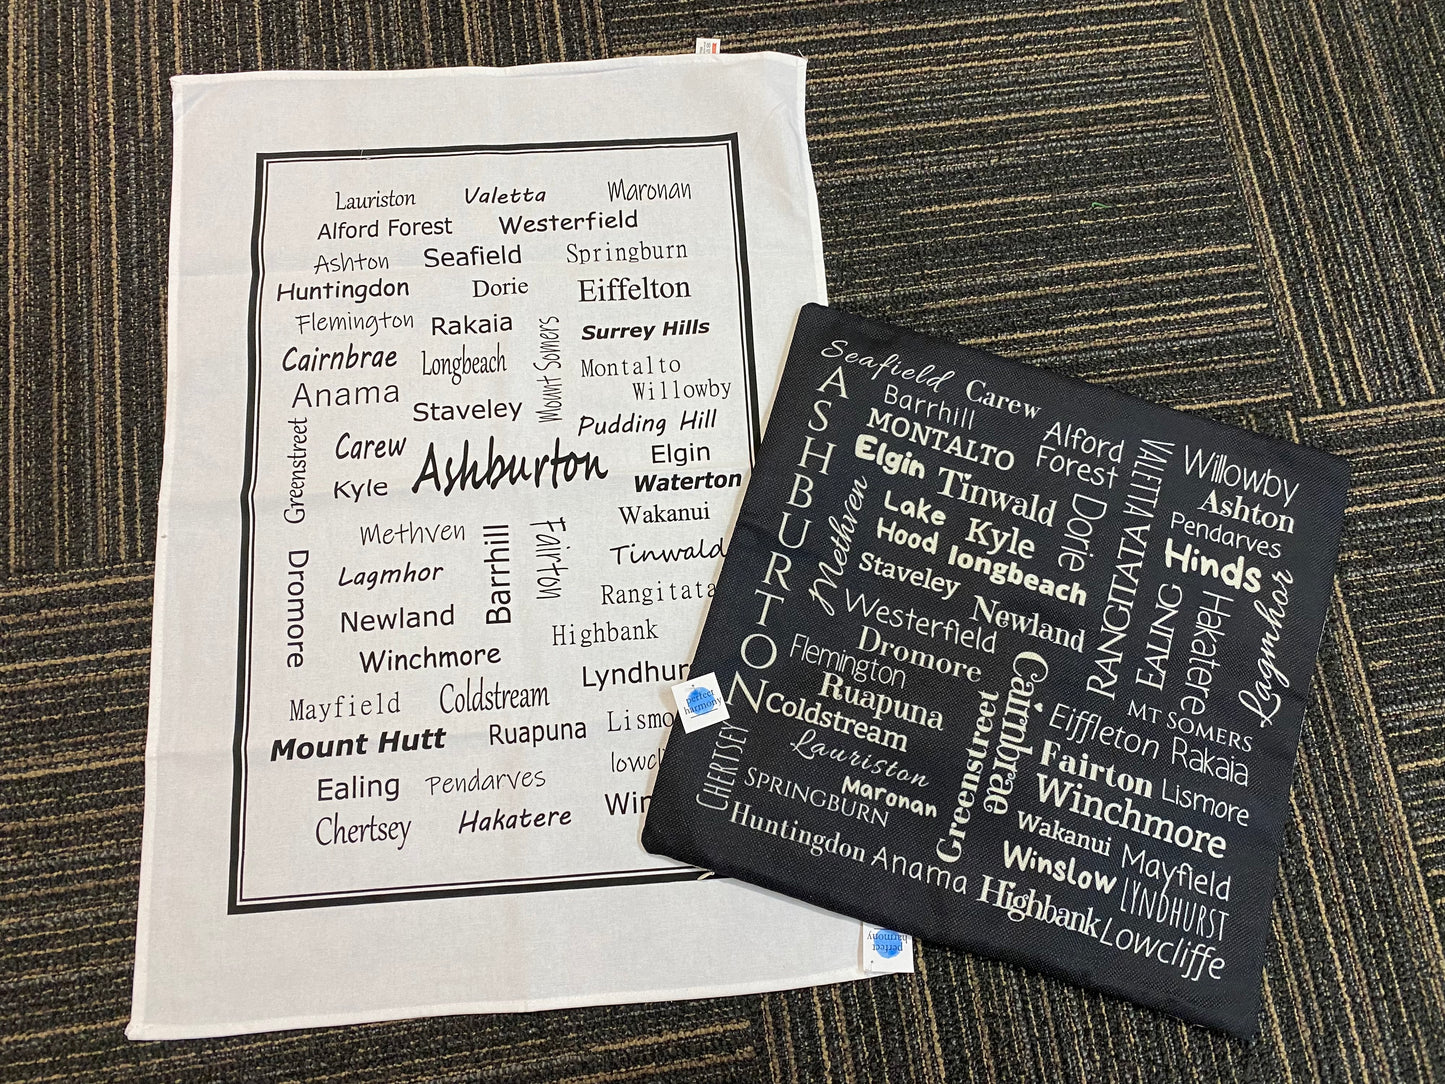 Lauriston Valetta Maronan
Alford Forest Westerfield
Ashton Seafield Springburn
Huntingdon Dorie Eiffelton
Flemington Rakaia Mount Somers Surrey Hills
Cairnbrae Longbeach Montalto
Anama Willowby
Staveley Pudding Hill
Greenstreet Carew Ashburton Elgin
Kyle Waterton
Methven Barrhill Fairton Wakanui
Dromore Lagmhor Tinwald
Newland Rangitata
Winchmore Highbank
Lyndhur
Mayfield Coldstream
Mount Hutt Ruapuna Lismo
Ealing Pendarves lowcl
Chertsey Hakatere Win
perfect
harmony
Seafield Carew
ASHBURTON
Barrhill Alford
Forest
MONTALTO VALETTA Willowby
Elgin Tinwald Ashton
Methven Lake
Hood Kyle Dorie RANGITATA Pendarves
longbeach Hinds
Staveley EALING Hakatere Lagmhor
Westerfield Newland
Dromore
Flemington Cairnbrae MT SOMERS
Ruapuna Greenstreet Eiffleton Rakaia
Coldstream
CHERTSEY Lauriston Fairton Lismore
SPRINGBURN Maronan Winchmore
Wakanui Mayfield
Huntingdon Anama Winslow LYNDHURST
Highbank Lowcliffe
perfect
harmony